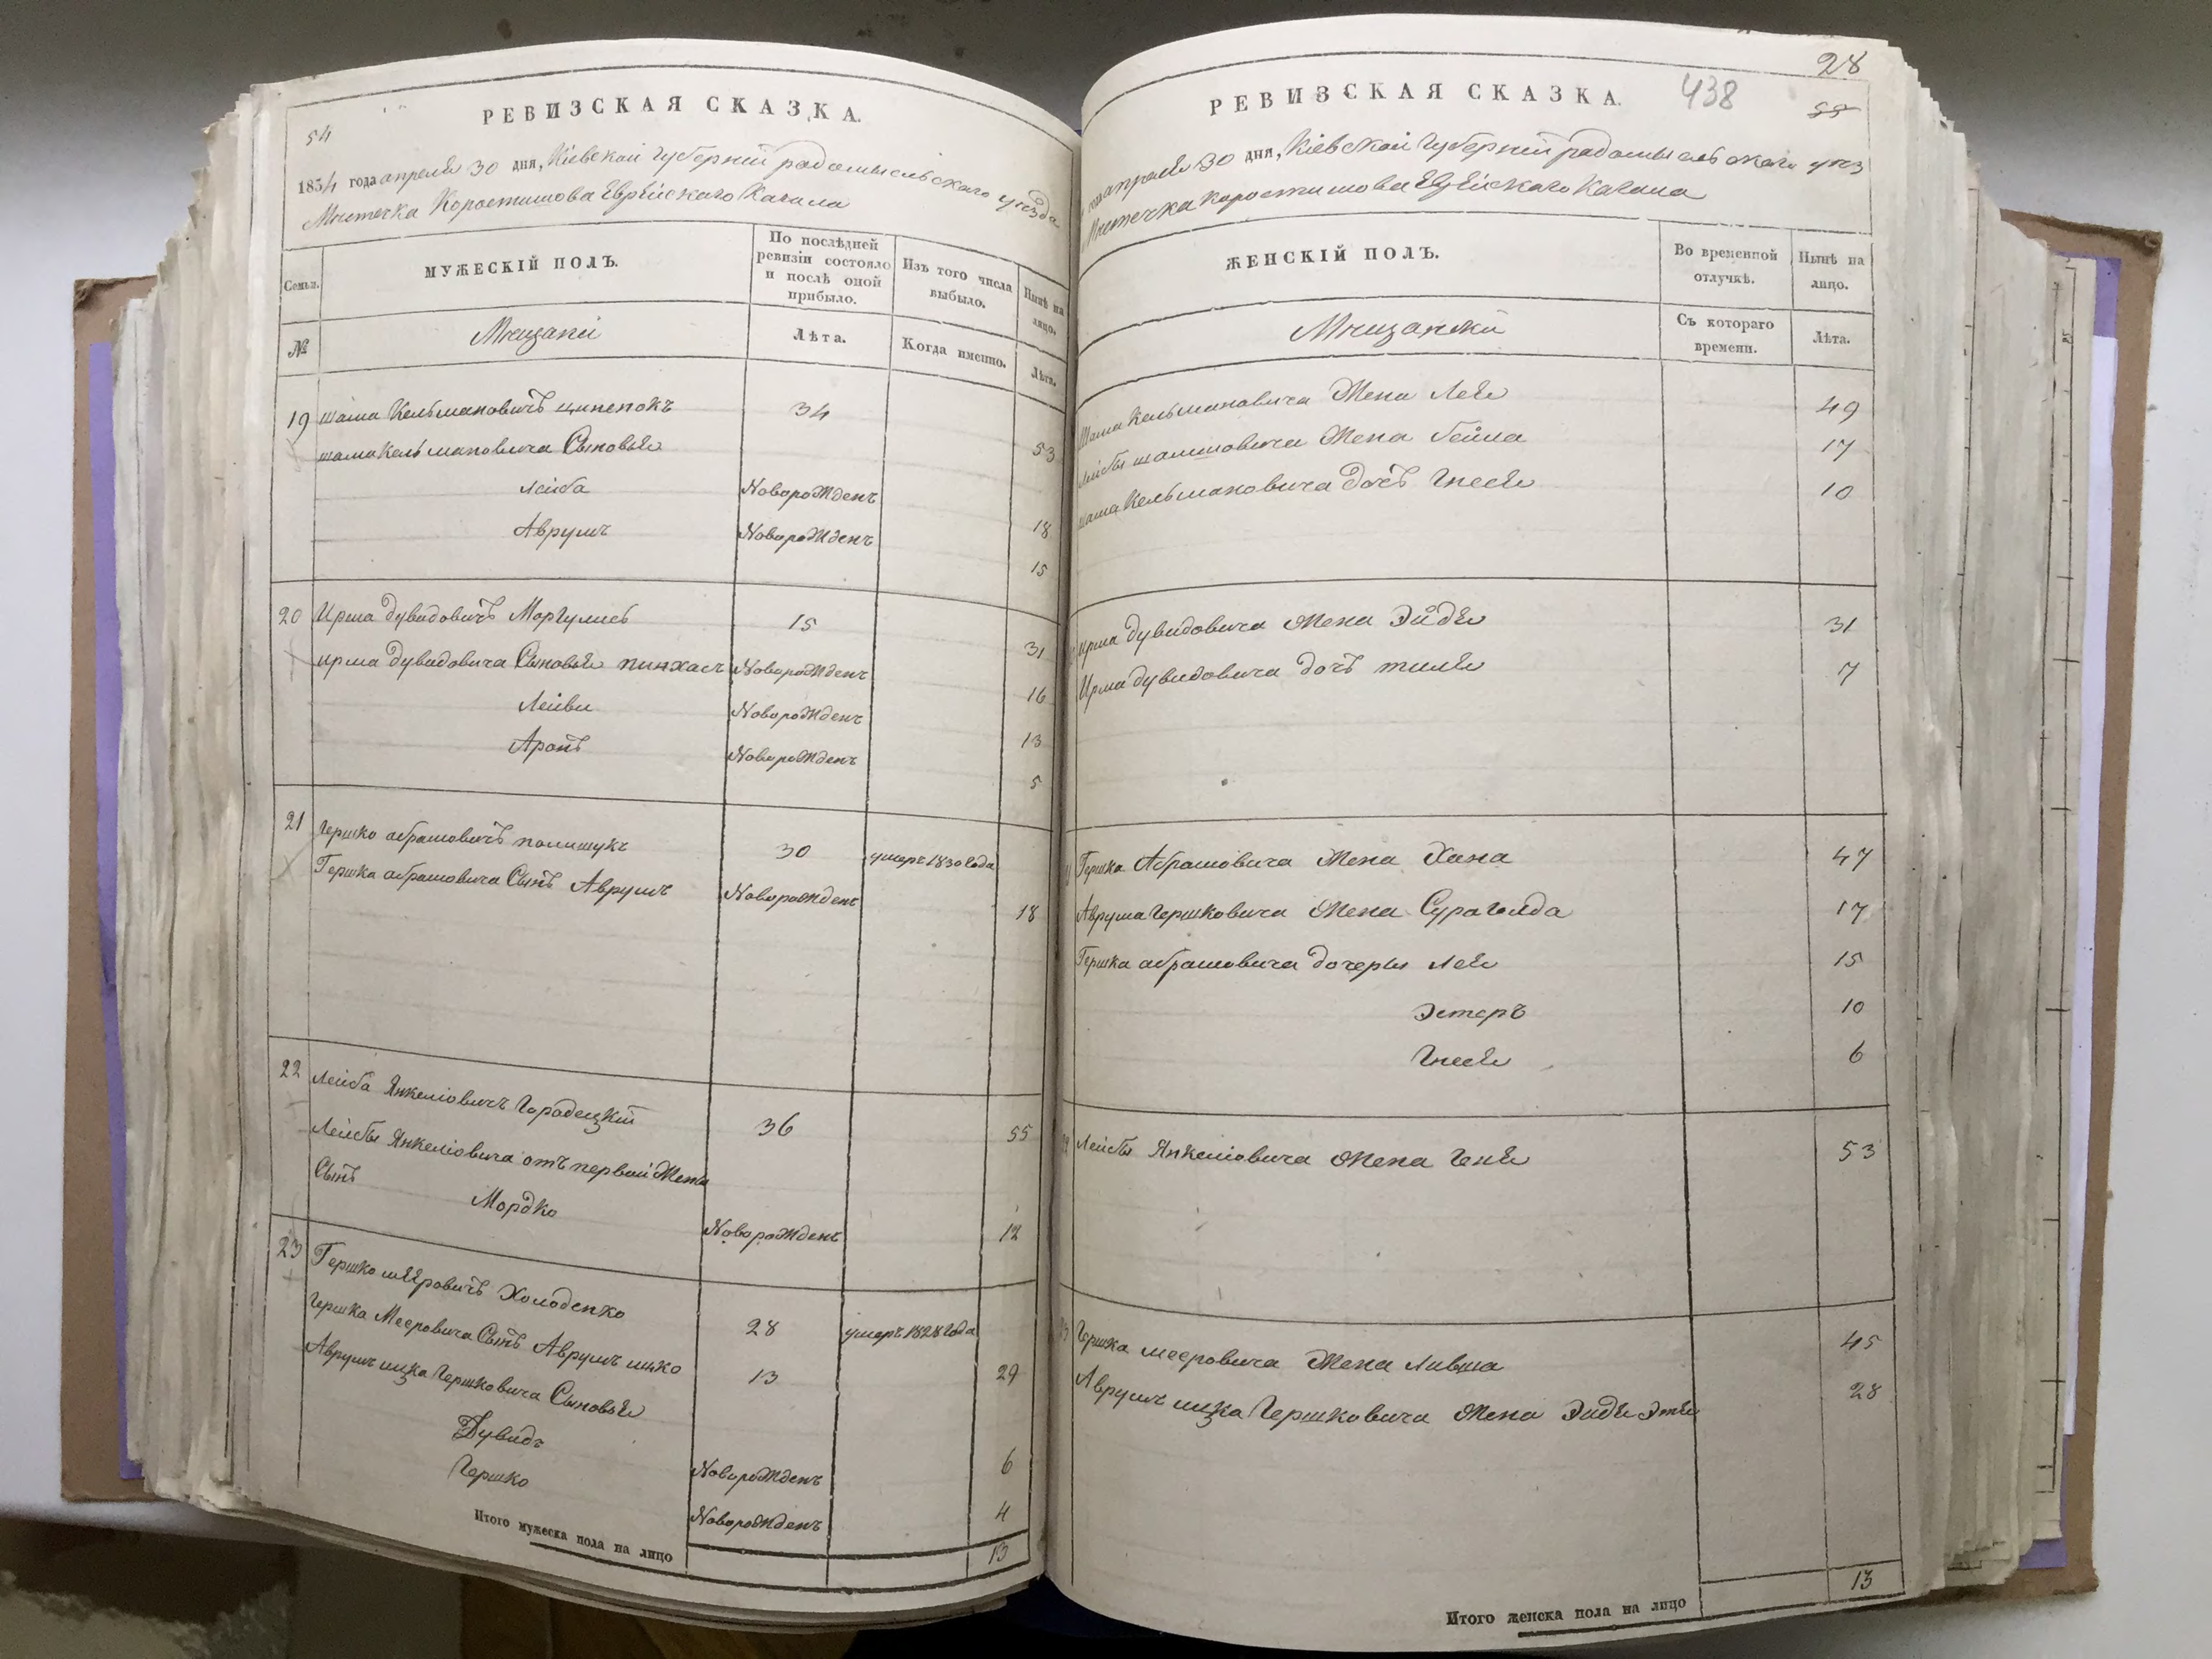 54
РЕВИЗСКАЯ СКАЗКА.
1834 года апреля 30 дня, Кіевской Губерній радомысльского уезда
Местечка Коростишова Еврейского Кагала
Семьи.
МУЖЕСКІЙ ПОЛЪ.
По послѣдней ревизіи состояло и послѣ оной прибыло.
Изъ того числа выбыло.
Нынѣ на лицо.
№
Мещане
Лѣта.
Когда именно.
Лѣта.
19 шама Кельмановичъ ципенокъ 34 53
шама Кельмановича Сыновья
Лейба Новорожденъ 18
Аврумъ Новорожденъ 15
20 Ирма Дувидовичъ Моргулисъ 15 31
ирма Дувидовича Сыновья пинхасъ Новорожденъ 16
Лейви Новорожденъ 13
Аронъ Новорожденъ 5
21 Гершко абрамовичъ полищукъ 30 умеръ 1830 года
Гершка абрамовича Сынъ Аврумъ Новорожденъ 18
22 Лейба Янкеліовичъ Городецкій 36 55
Лейбы Янкеліовича отъ первой Жены
Сынъ
Мордко Новорожденъ 12
23 Гершко мееровичъ Холоденко 28 умеръ 1828 года
Гершка Мееровича Сынъ Аврумъ ицко 13 29
Аврумъ ицка Гершковича Сыновья
Дувидъ Новорожденъ 6
Гершко Новорожденъ 4
Итого мужеска пола на лицо 13
28
РЕВИЗСКАЯ СКАЗКА. 438
55
апреля 30 дня, Кіевской Губерній радомысльского уезд
Местечка Коростишова Еврейского Кагала
ЖЕНСКІЙ ПОЛЪ.
Во временной отлучкѣ.
Нынѣ на лицо.
Мещанки
Съ котораго времени.
Лѣта.
Шама Кельмановича Жена Лея 49
лейбы шамовича Жена бейла 17
шама Кельмановича дочъ Гнеся 10
Ирма Дувидовича Жена Эйдя 31
Ирма дувидовича дочъ тиля 7
Гершка Абрамовича Жена Хана 47
Аврума Гершковича Жена Сура Голда 17
Гершка абрамовича дочеры Лея 15
Эстеръ 10
Гнеся 6
Лейбы Янкеліовича Жена Геня 53
Гершка мееровича Жена Ливша 45
Аврумъ ицка Гершковича Жена Эйдя Этя 28
Итого женска пола на лицо 13